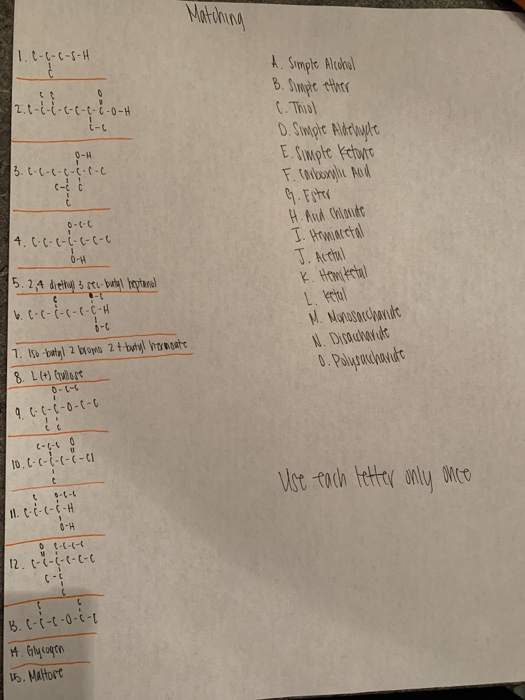 Matching
1. C-C-C-S-H
C
C C O
2. C-C-C-C-C-C-C-O-H
C-C
O-H
3. C-C-C-C-C-C-C
C-C C
C
O-C-C
4. C-C-C-C-C-C-C
O-H
5. 2,4 diethyl 3 sec-butyl heptanal
C O-C
6. C-C-C-C-C-C-H
O-C
7. Iso-butyl 2 bromo 2 t-butyl hexanoate
8. L(+) Gullose
O-C-C
9. C-C-C-O-C-C
C C
C-C-C O
10. C-C-C-C-C-Cl
C
C O-C-C
11. C-C-C-C-H
O-H
O C-C-C-C
12. C-C-C-C-C-C
C-C
C
C C
13. C-C-C-O-C-C
14. Glycogen
15. Maltose
A. Simple Alcohol
B. Simple ether
C. Thiol
D. Simple Aldehyde
E. Simple Ketone
F. Carboxylic Acid
G. Ester
H. Acid Chloride
I. Hemiacetal
J. Acetal
K. Hemiketal
L. Ketal
M. Monosaccharide
N. Disaccharide
O. Polysaccharide
Use each letter only once